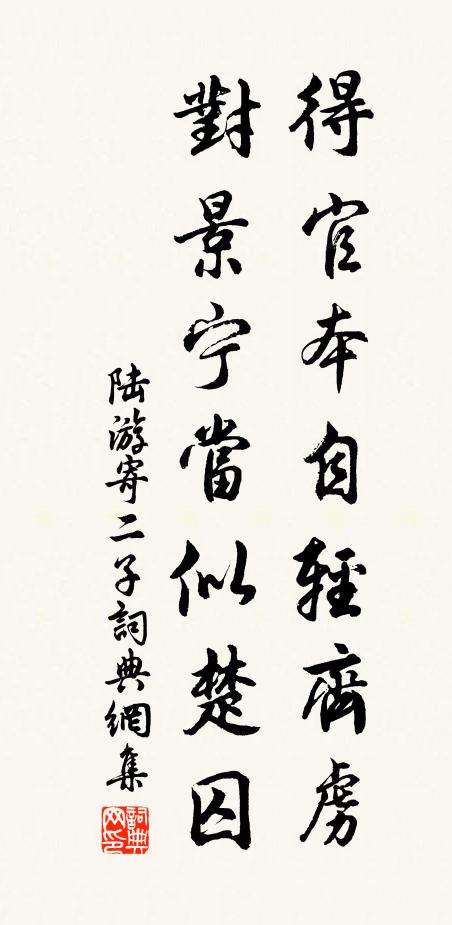 得官本自輕齊虜
對景宁當似楚囚
陆游寄二子詞典網集
詞典网印